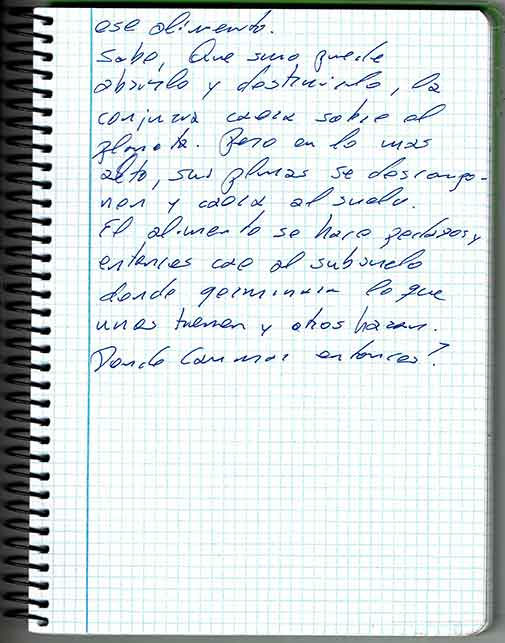 ese alimento.
Sabe, Que sino puede
abrirlo y destruirlo, la
conjura caera sobre el
planeta. Pero en lo mas
alto, sus plumas se descompo-
nen y caera al suelo.
El alimento se hace pedazos y
entonces cae al subsuelo
donde germinara lo que
unos tienen y otros haran.
Donde entonces?